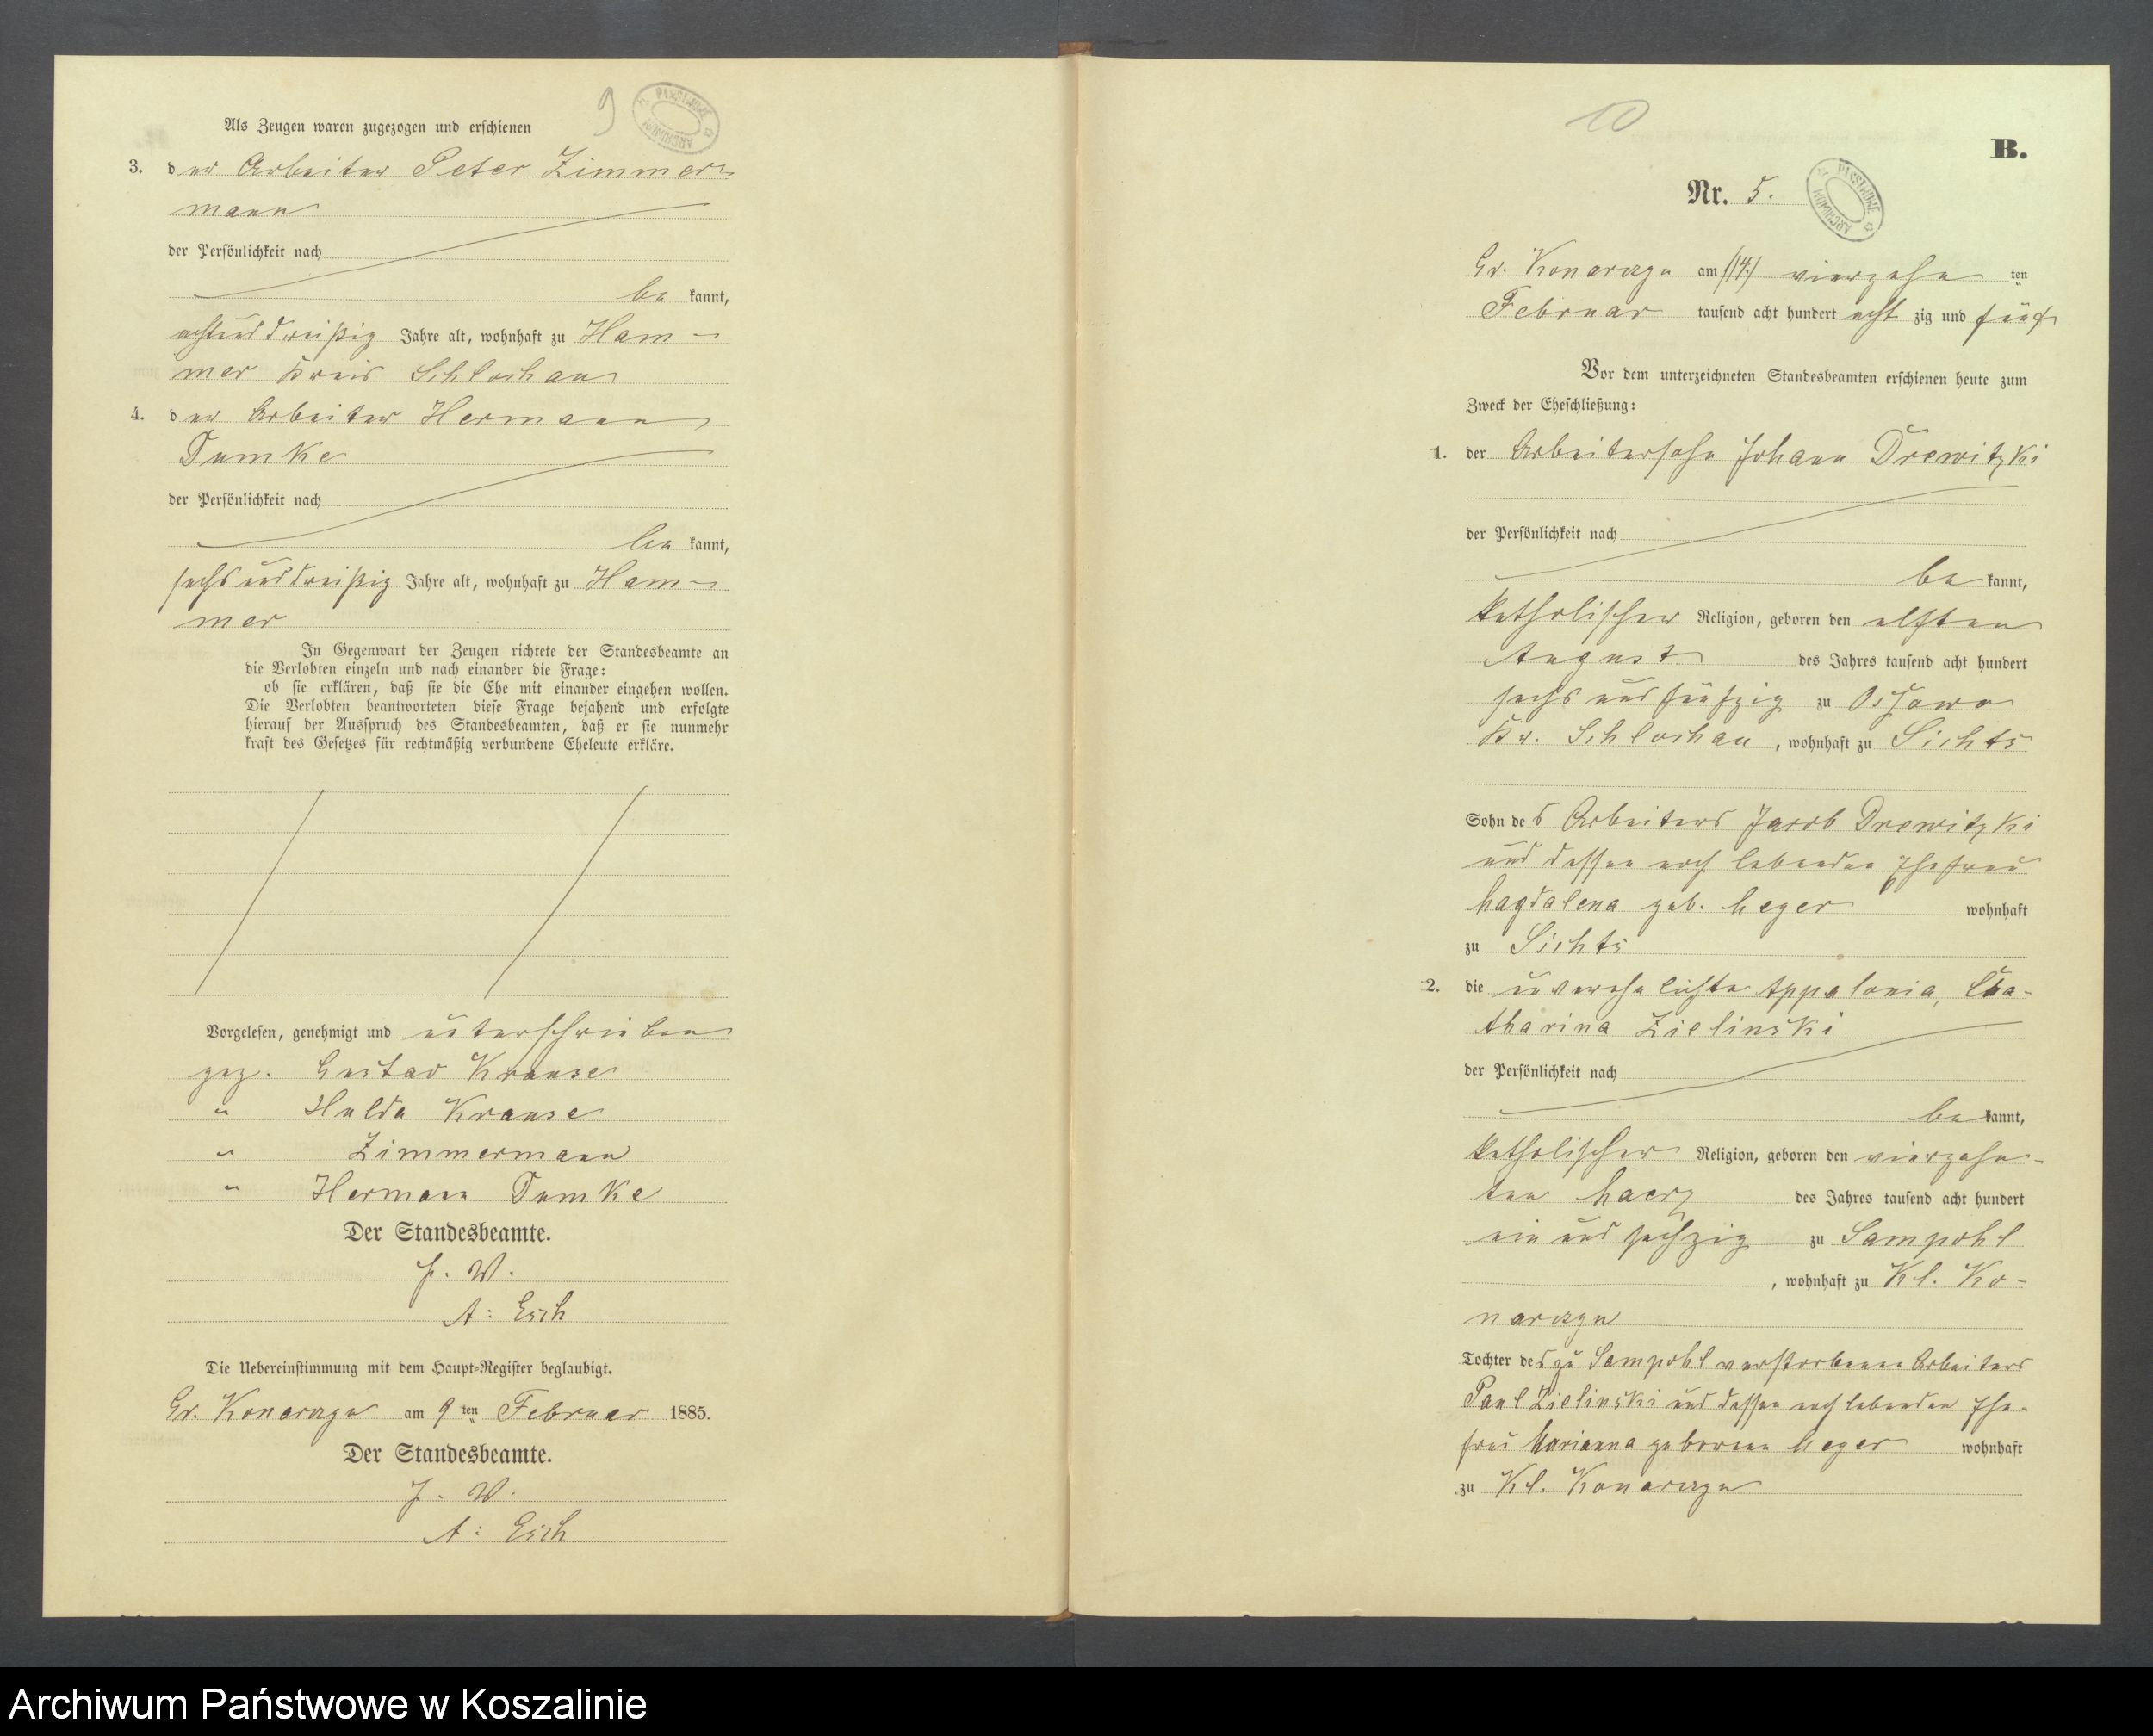 9
Als Zeugen waren zugezogen und erschienen
3. der Arbeiter Peter Zimmer-
mann
der Persönlichkeit nach
be kannt,
achtunddreißig Jahre alt, wohnhaft zu Ham-
mer Kreis Schlochau
4. der Arbeiter Hermann
Dumke
der Persönlichkeit nach
be kannt,
sechsunddreißig Jahre alt, wohnhaft zu Ham-
mer
In Gegenwart der Zeugen richtete der Standesbeamte an
die Verlobten einzeln und nach einander die Frage:
ob sie erklären, daß sie die Ehe mit einander eingehen wollen.
Die Verlobten beantworteten diese Frage bejahend und erfolgte
hierauf der Ausspruch des Standesbeamten, daß er sie nunmehr
kraft des Gesetzes für rechtmäßig verbundene Eheleute erkläre.
Vorgelesen, genehmigt und unterschrieben
gez. Gustav Krause
" Hulda Krause
" Zimmermann
" Hermann Dumke
Der Standesbeamte.
J. V.
A: Esch
Die Uebereinstimmung mit dem Haupt-Register beglaubigt.
Gr. Konarczyn am 9 ten Februar 1885.
Der Standesbeamte.
J. V.
A: Esch
10
B.
Nr. 5.
ARCHIWUM PAŃSTWOWE
Gr. Konarczyn am /14./ vierzehn ten
Februar tausend acht hundert acht zig und fünf
Vor dem unterzeichneten Standesbeamten erschienen heute zum
Zweck der Eheschließung:
1. der Arbeitersohn Johann Drewitzki
der Persönlichkeit nach
be kannt,
katholischer Religion, geboren den elften
August des Jahres tausend acht hundert
sechs und fünfzig zu Ossowo
Kr. Schlochau, wohnhaft zu Sichts
Sohn des Arbeiters Jacob Drewitzki
und dessen noch lebenden Ehefrau
Magdalena geb. Meger wohnhaft
zu Sichts
2. die unverehelichte Appalonia, Ca-
tharina Zielinski
der Persönlichkeit nach
be kannt,
katholischer Religion, geboren den vierzehn-
ten Maerz des Jahres tausend acht hundert
ein und sechzig zu Sampohl
, wohnhaft zu Kl. Ko-
narczyn
Tochter des zu Sampohl verstorbenen Arbeiters
Paul Zielinski und dessen noch lebenden Ehe-
frau Marianna geborene Meger wohnhaft
zu Kl. Konarczyn
Archiwum Państwowe w Koszalinie